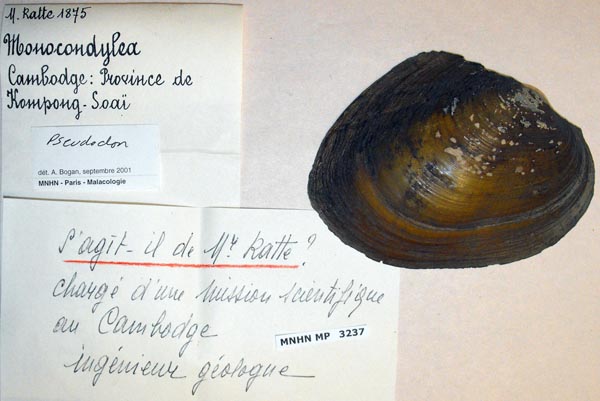 M. Ratte 1875
Monocondylea
Cambodge: Province de
Kompong-Soaï
Pseudodon
dét. A. Bogan, septembre 2001
MNHN - Paris - Malacologie
S'agit-il de Mr Ratte?
chargé d'une mission scientifique
au Cambodge
ingénieur géologue
MNHN MP 3237